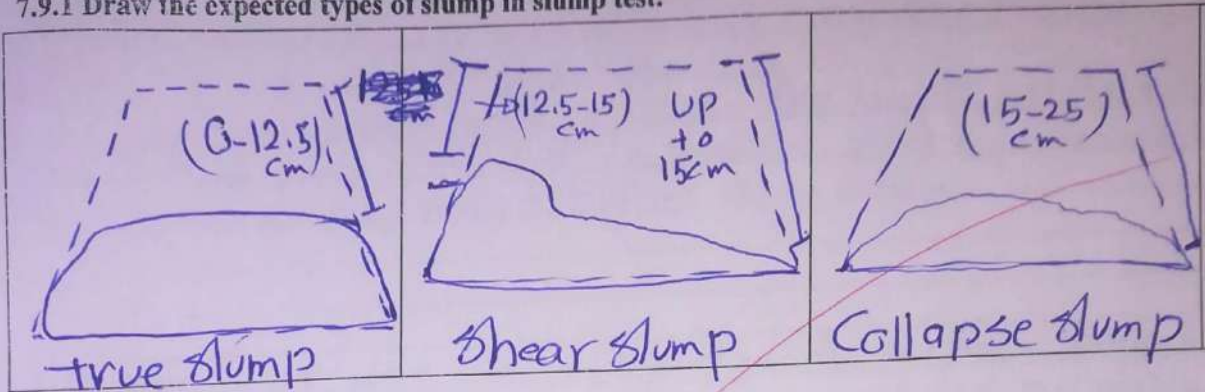 7.9.1 Draw the expected types of slump in slump test.
(0-12.5)
cm
cm
(12.5-15)
cm
UP
to
15cm
(15-25)
cm
true slump
Shear slump
Collapse slump